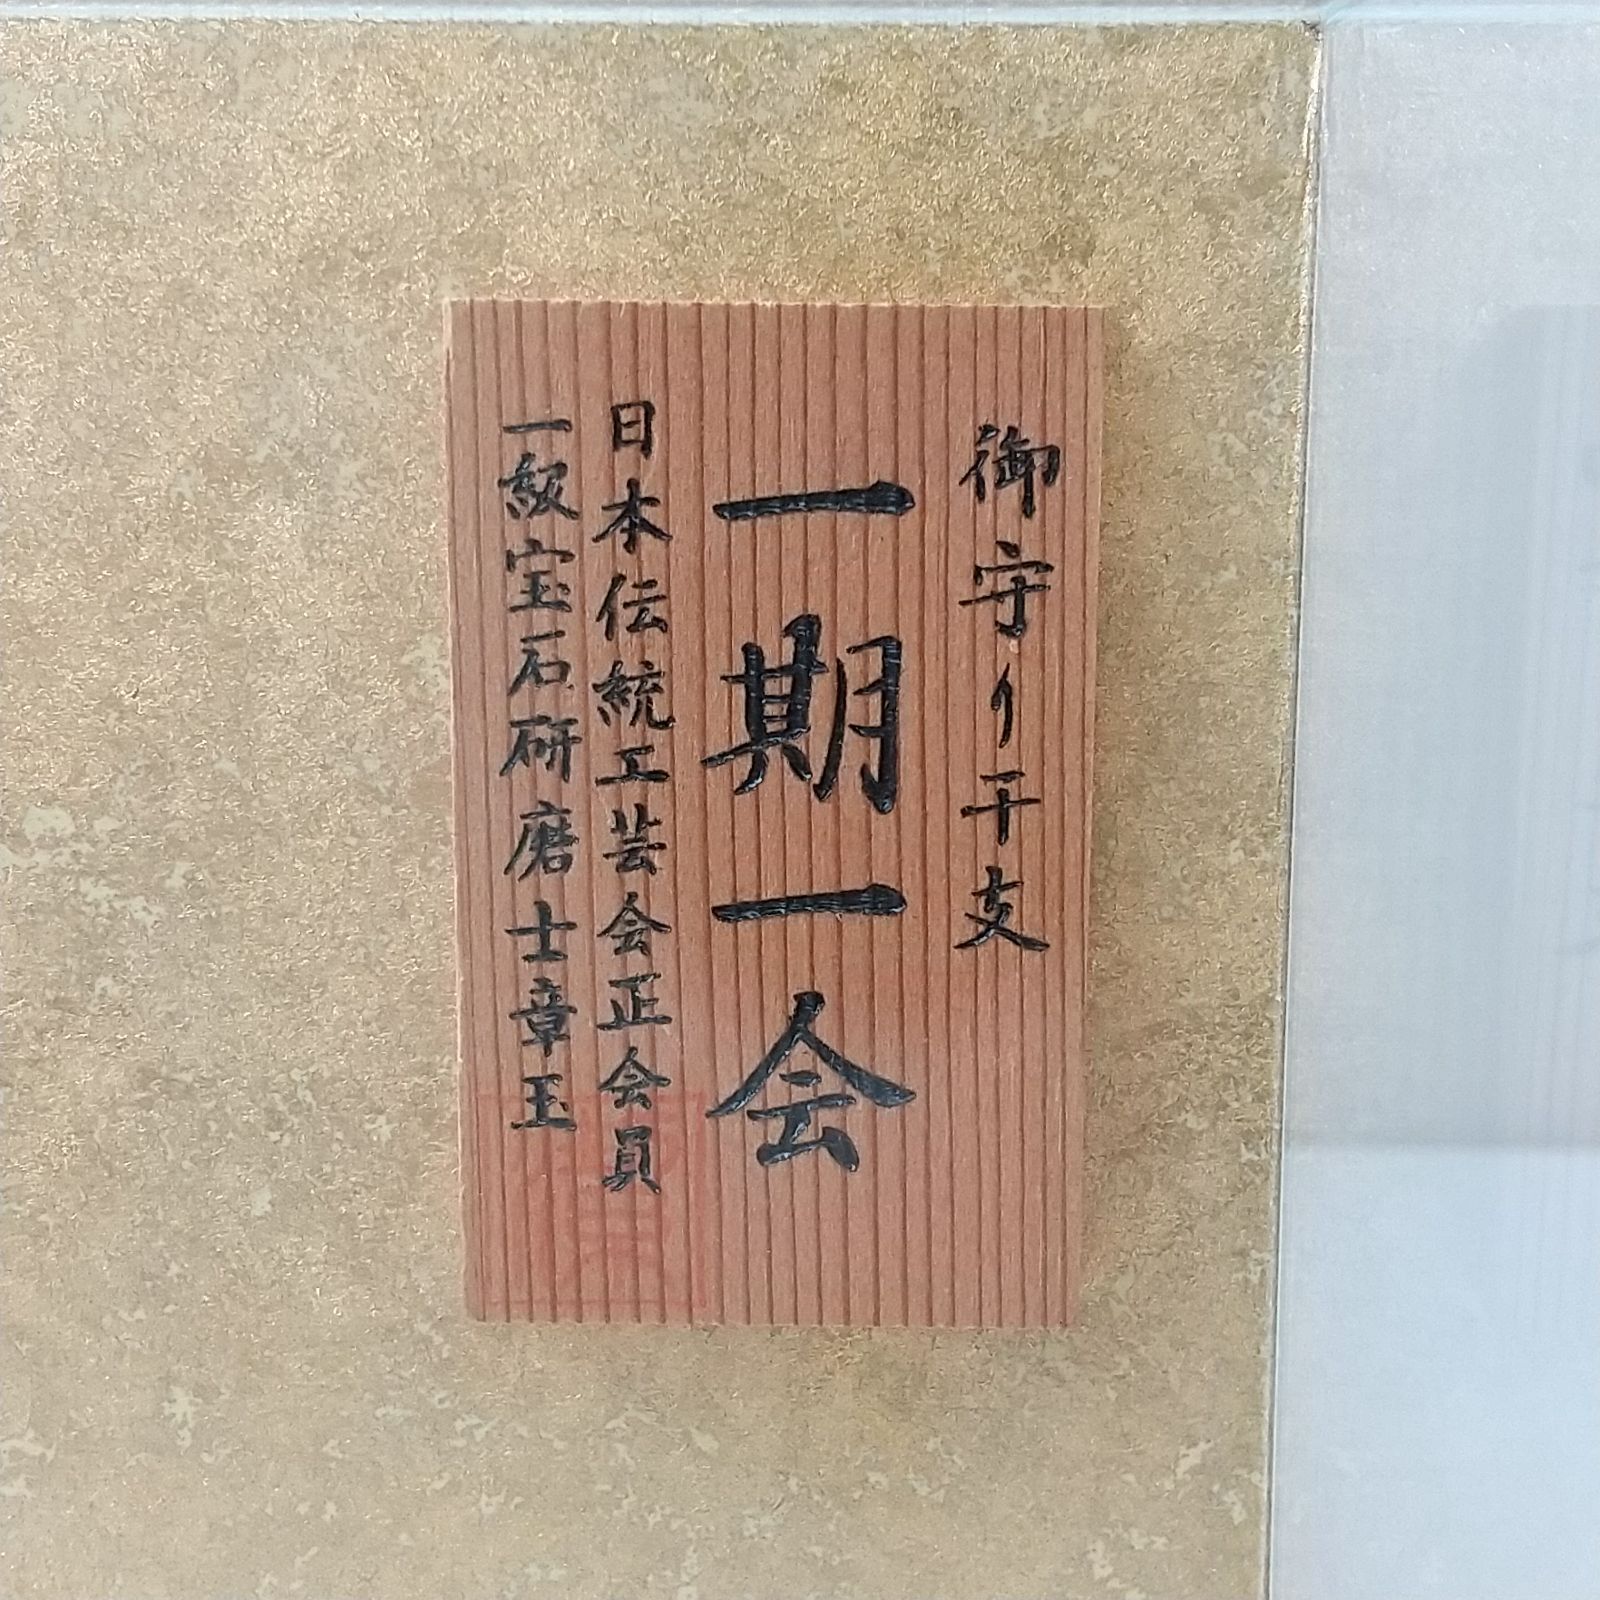 御守り干支
一期一会
日本伝統工芸会正会員
一級宝石研磨士章玉